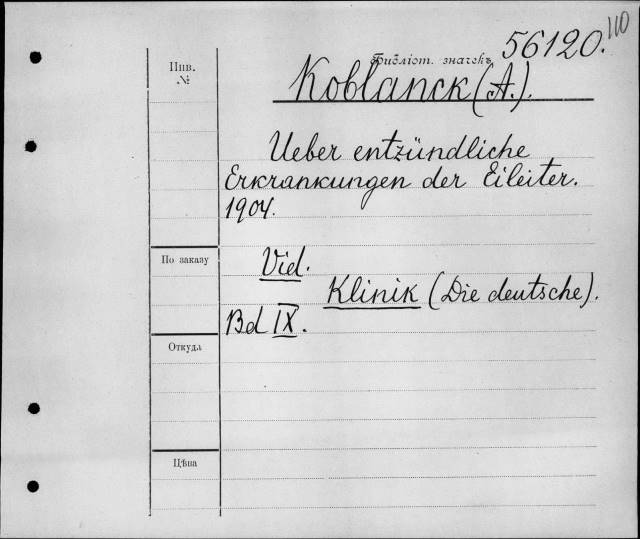 110
56120.
Инв.
№
Библіот. значекъ
Koblanck (A.).
Ueber entzündliche
Erkrankungen der Eileiter.
1904.
По заказу
Vid.
Klinik (Die deutsche).
Bd IX.
Откуда
Цѣна